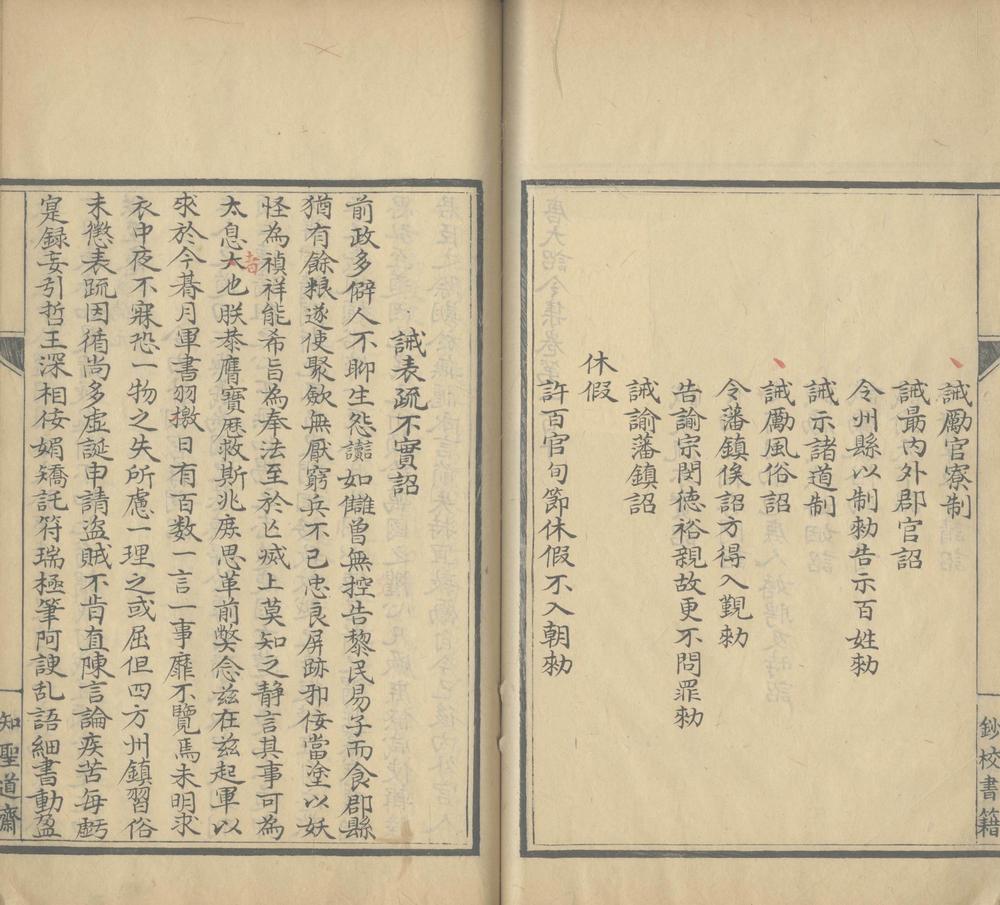 誡勵官寮制
誡最內外郡官詔
令州縣以制勑告示百姓勑
誡示諸道制
誡勵風俗詔
令藩鎮俟詔方得入覲勑
告諭宗閔徳裕親故更不問罪勑
誡諭藩鎮詔
休假
許百官旬節休假不入朝勑
鈔校書籍
誡表疏不實詔
前政多僻人不聊生怨讟如讎曽無控告黎民易子而食郡縣
猶有餘粮遂使聚斂無厭窮兵不已忠良屏跡邪佞當塗以妖
怪為禎祥能希旨為奉法至於亡滅上莫知之静言其事可為
太息大也朕恭膺寶厯救斯兆庻思革前弊念兹在兹起軍以
者
求於今朞月軍書羽檄日有百数一言一事靡不覽焉未明求
衣中夜不寐恐一物之失所慮一理之或屈但四方州鎮習俗
未懲表疏因循尚多虚誕申請盗賊不肯直陳言論疾苦每虧
寔録妄引哲王深相佞媚矯託符瑞極筆阿諛乱語細書動盈
知聖道齋